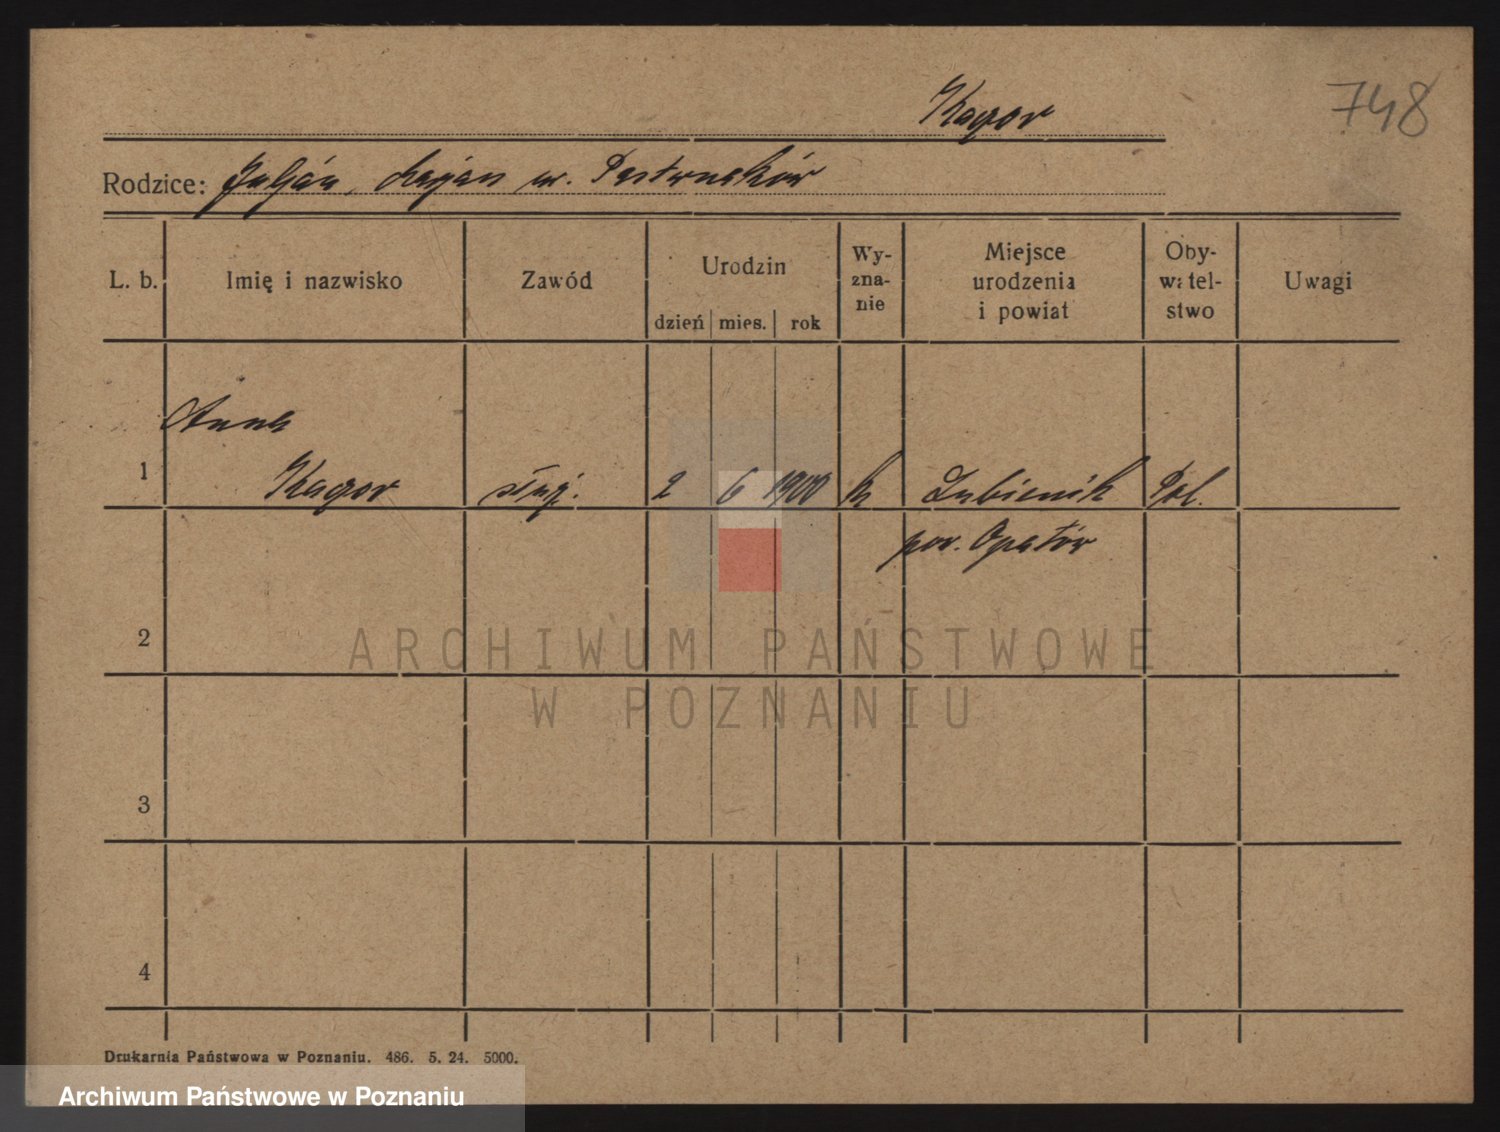 748
Kacor
Rodzice: Juljan,
L. b.
Imię i nazwisko
Zawód
Urodzin
dzień mies. rok
Wy-
zna-
nie
Miejsce
urodzenia
i powiat
Oby-
watel-
stwo
Uwagi
1
Anna
Kacor
służ.
2
6
1900
k
Lubienik
Pol.
pow. Opatów
2
ARCHIWUM PAŃSTWOWE
W POZNANIU
3
4
Drukarnia Państwowa w Poznaniu. 486. 5. 24. 5000.
Archiwum Państwowe w Poznaniu